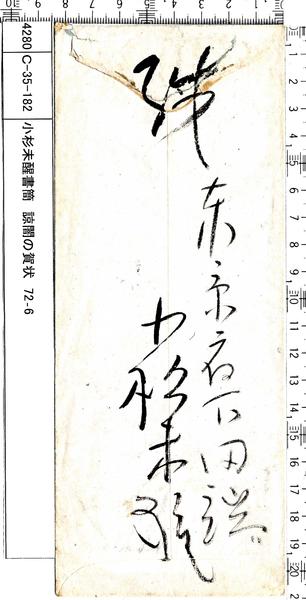 4280 C-35-182 小杉未醒書簡 諒闇の賀状 72-6
東京府下田端
小杉未醒